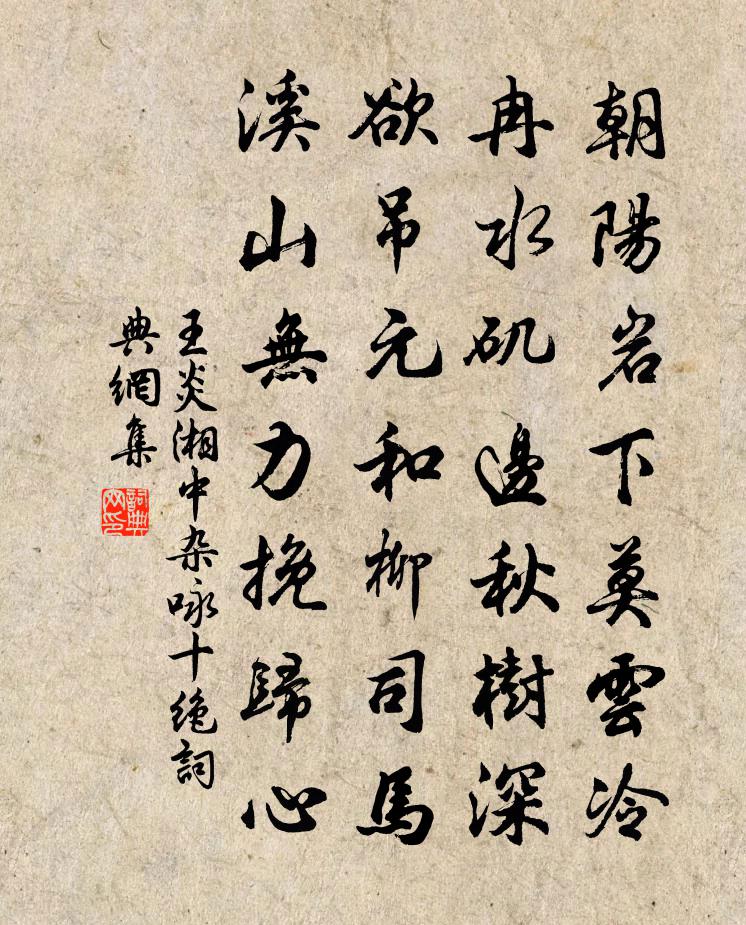 朝陽岩下莫雲冷
冉水矶邊秋樹深
欲吊元和柳司馬
溪山無力挽歸心
王炎湘中杂咏十绝詞
典網集
詞典
网印